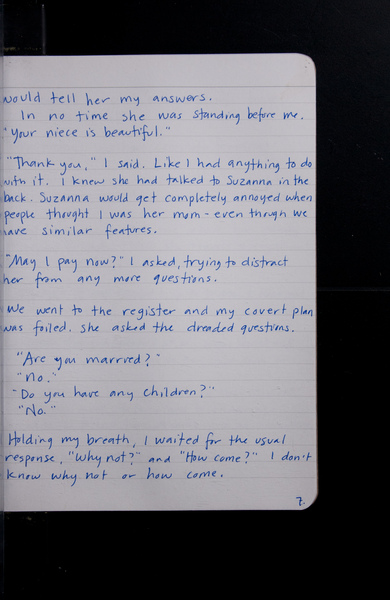 would tell her my answers.
In no time she was standing before me.
"Your niece is beautiful."
"Thank you," I said. Like I had anything to do
with it. I knew she had talked to Suzanna in the
back. Suzanna would get completely annoyed when
people thought I was her mom - even though we
have similar features.
"May I pay now?" I asked, trying to distract
her from any more questions.
We went to the register and my covert plan
was foiled. She asked the dreaded questions.
"Are you married?"
"No."
"Do you have any children?"
"No."
Holding my breath, I waited for the usual
response, "Why not?" and "How come?" I don't
know why not or how come.
7.